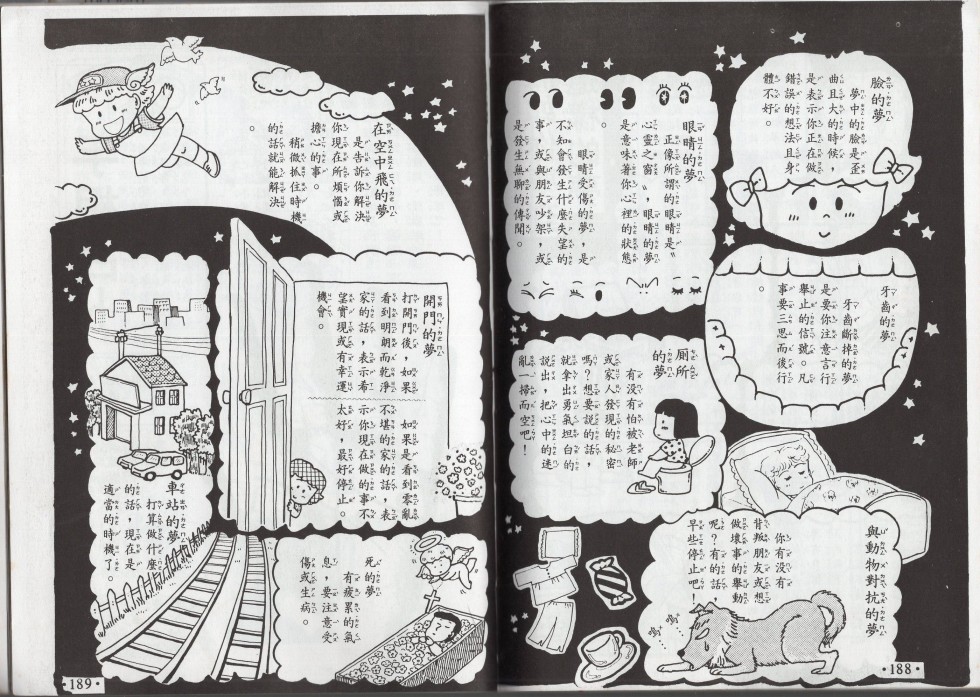 臉的夢
夢中的臉是歪
曲且大的時候，
是表示你正在做
錯誤的想法且身
體不好。
眼睛的夢
正像所謂的眼睛是〝
心靈之窗〞，眼睛的夢
是意味著你心裡的狀態
。
眼睛受傷的夢，是
不知會發生什麼失望的
事，或與朋友吵架，或
是發生無聊的傳聞。
牙齒的夢
牙齒斷掉的夢
是要你注意言行
舉止的信號。凡
事要三思而後行
。
廁所
的夢
有沒有怕被老師
或家人發現的秘密
嗎？想要說的話，
就拿出勇氣坦白的
說出，把心中的迷
亂一掃而空吧！
與動物對抗的夢
你有沒有
背叛朋友或想
做壞事的舉動
呢？有的話，
早些停止吧！
嗚…
嗚…
•188•
在空中飛的夢
是告訴你解決
你現在所煩惱或
擔心的事。
稍微抓住時機
的話就能解決
。
開門的夢
打開門後，如果
看到明朗而乾淨
家的話，表示希
望實現或有幸運
機會。
如果是看到零亂
不堪的家的話，表
示你現在做的事不
太好，最好停止。
車站的夢
打算做什麼
的話，現在是
適當的時機了。
死的夢
有疲累的氣
息，要注意受
傷或生病。
•189•